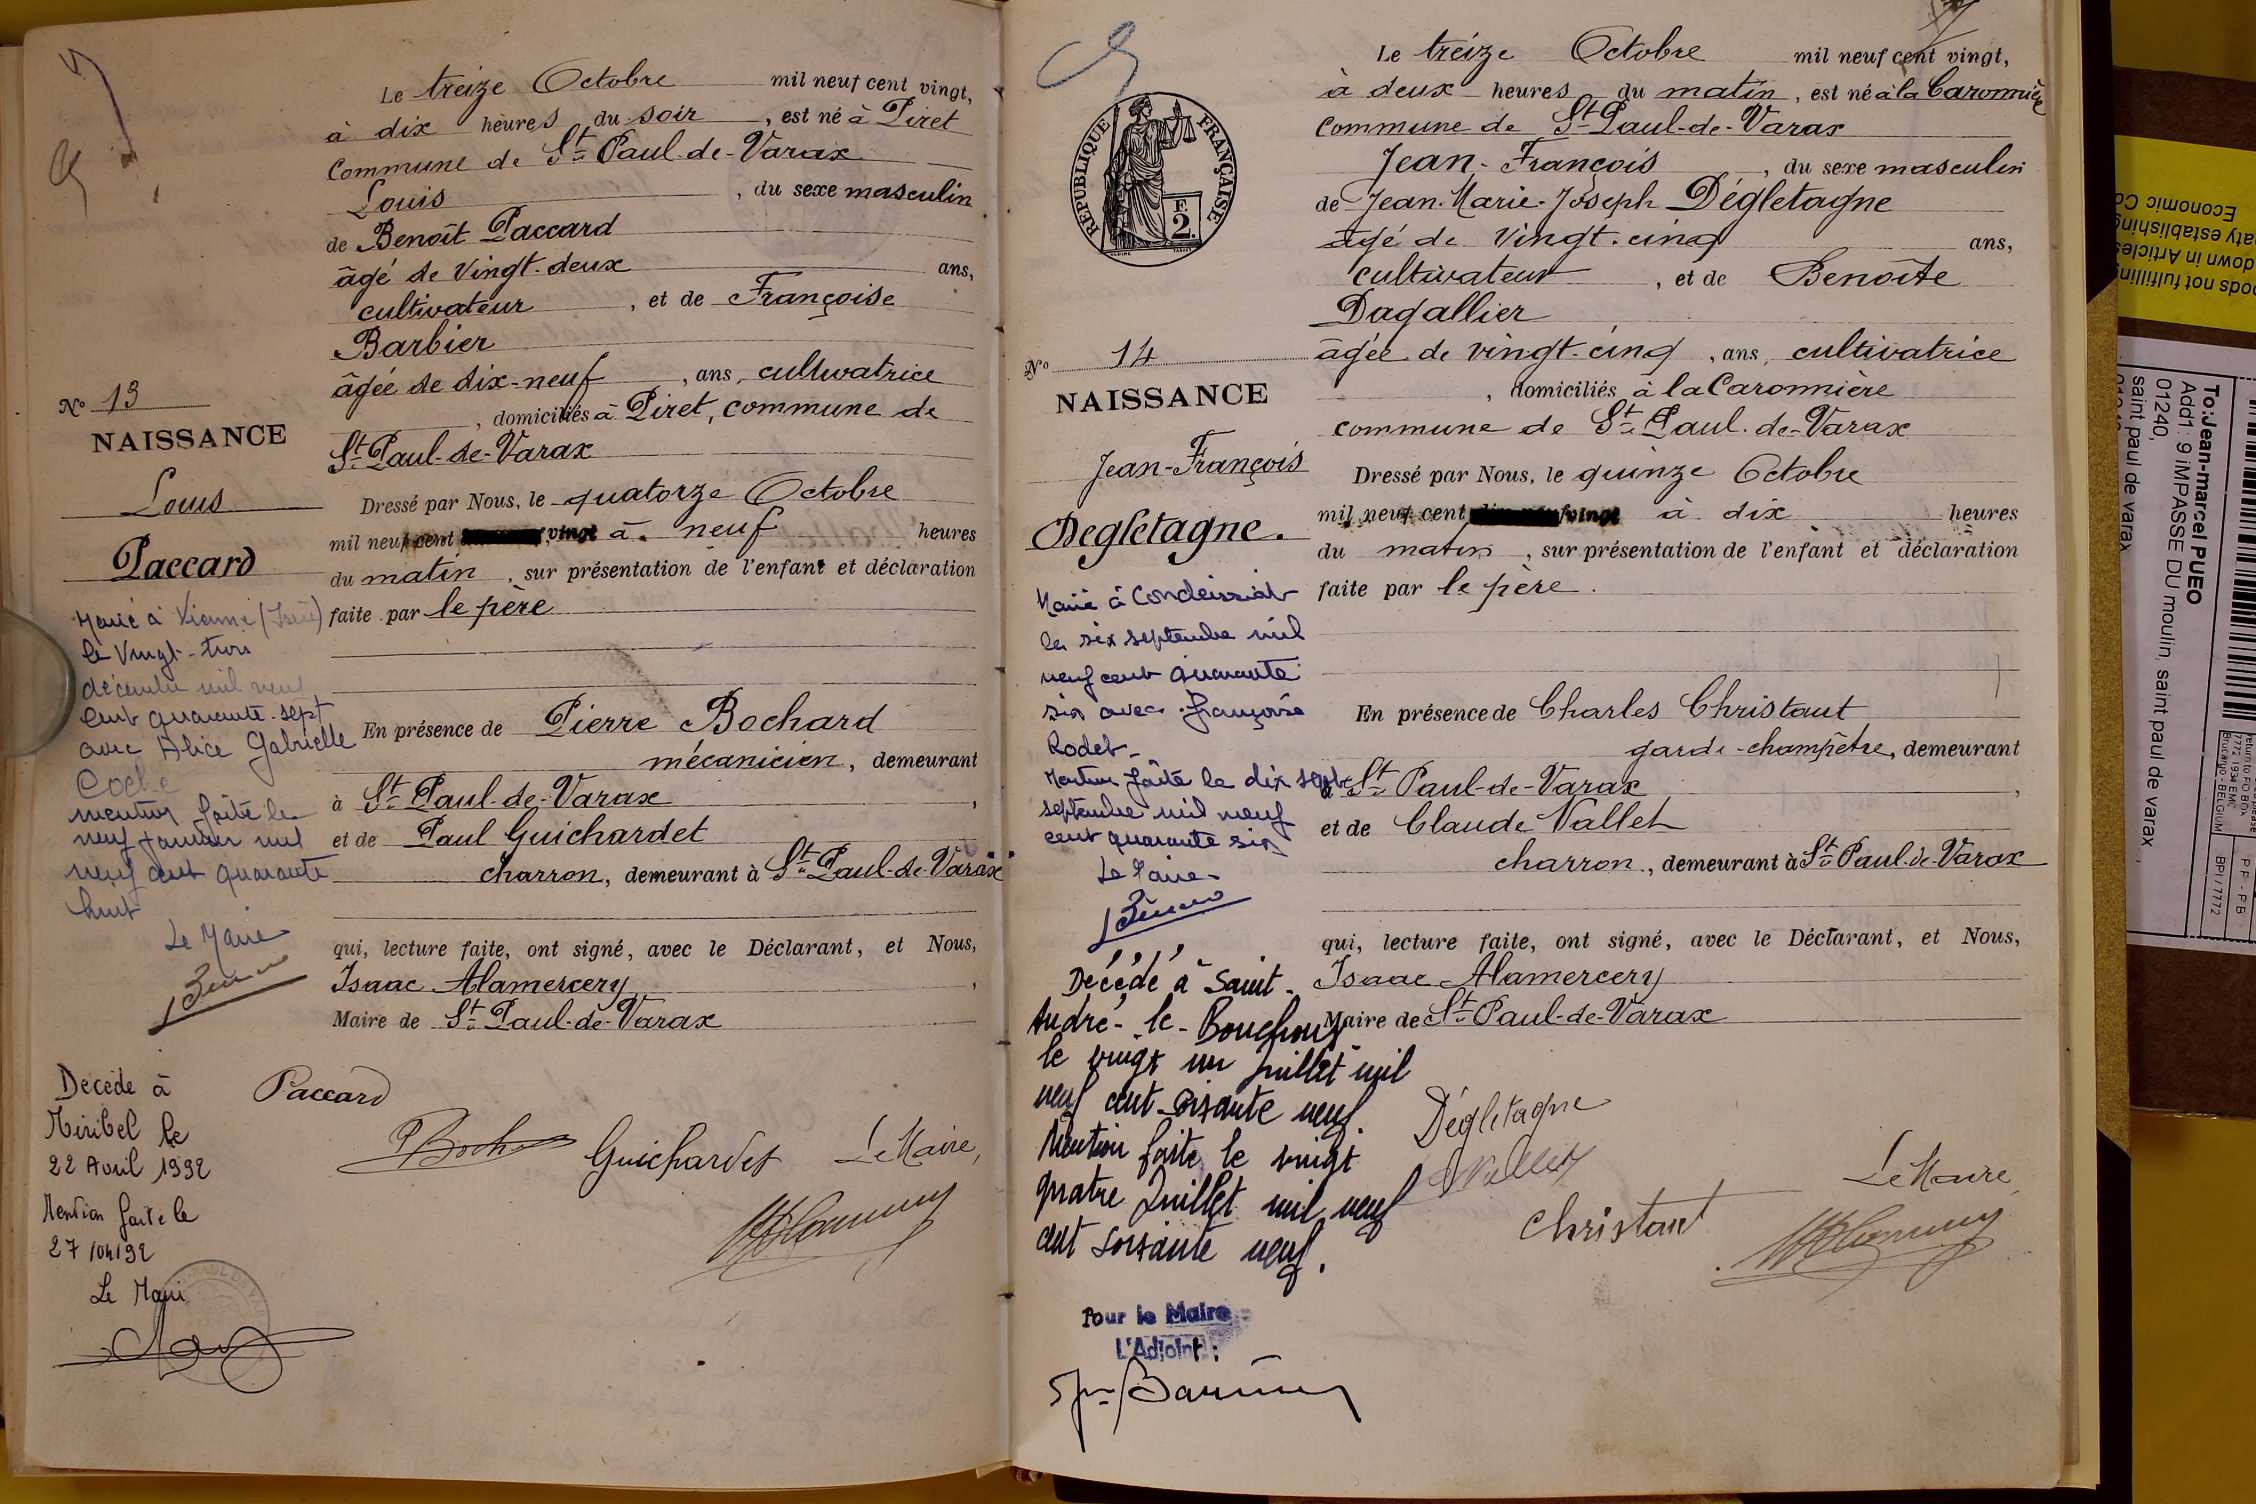 Le treize Octobre mil neuf cent vingt,
à dix heures du soir, est né à Piret
commune de St Paul-de-Varax
Louis, du sexe masculin
de Benoît Paccard
âgé de vingt-deux ans,
cultivateur, et de Françoise
Barbier
âgée de dix-neuf, ans, cultivatrice
, domiciliés à Piret, commune de
St Paul-de-Varax
Dressé par Nous, le quatorze Octobre
mil neuf cent vingt à neuf heures
du matin, sur présentation de l'enfant et déclaration
faite par le père
En présence de Pierre Bochard
mécanicien, demeurant
à St Paul-de-Varax,
et de Paul Guichardet
charron, demeurant à St Paul-de-Varax
qui, lecture faite, ont signé, avec le Déclarant, et Nous,
Isaac Alamercery,
Maire de St Paul-de-Varax
Paccard
Guichardet
Le Maire,
No 13
NAISSANCE
Louis
Paccard
Marié à Vienne (Isère)
le vingt-trois
décembre mil neuf
cent quarante-sept
avec Alice Gabrielle
Coche
mention faite le
neuf janvier mil
neuf cent quarante
huit
Le Maire
Décédé à
Miribel le
22 Avril 1992
Mention faite le
27/04/92
Le Maire
Le treize Octobre mil neuf cent vingt,
à deux heures du matin, est né à la Caronnière
commune de St Paul-de-Varax
Jean-François, du sexe masculin
de Jean-Marie-Joseph Dégletagne
âgé de vingt-cinq ans,
cultivateur, et de Benoîte
Dagallier
âgée de vingt-cinq, ans, cultivatrice
, domiciliés à la Caronnière
commune de St Paul-de-Varax
Dressé par Nous, le quinze Octobre
mil neuf cent vingt à dix heures
du matin, sur présentation de l'enfant et déclaration
faite par le père.
En présence de Charles Christaut
garde-champêtre, demeurant
à St Paul-de-Varax,
et de Claude Vallet
charron, demeurant à St Paul-de-Varax
qui, lecture faite, ont signé, avec le Déclarant, et Nous,
Isaac Alamercery
Maire de St Paul-de-Varax
Dégletagne
Vallet
Christaut
Le Maire,
RÉPUBLIQUE FRANÇAISE
F.
2.
No 14
NAISSANCE
Jean-François
Dégletagne.
Marié à Condeissiat
le six septembre mil
neuf cent quarante
six avec Françoise
Rodet-
Mention faite le dix sept
septembre mil neuf
cent quarante six
Le Maire
Décédé à Saint-
André-le-Bouchoux
le vingt un Juillet mil
neuf cent soixante neuf.
Mention faite le vingt
quatre Juillet mil neuf
cent soixante neuf.
Pour le Maire
L'Adjoint:
To:Jean-marcel PUEO
Add1: 9 IMPASSE DU moulin, saint paul de varax,
01240,
saint paul de varax
BPI / 7772
PP - PB